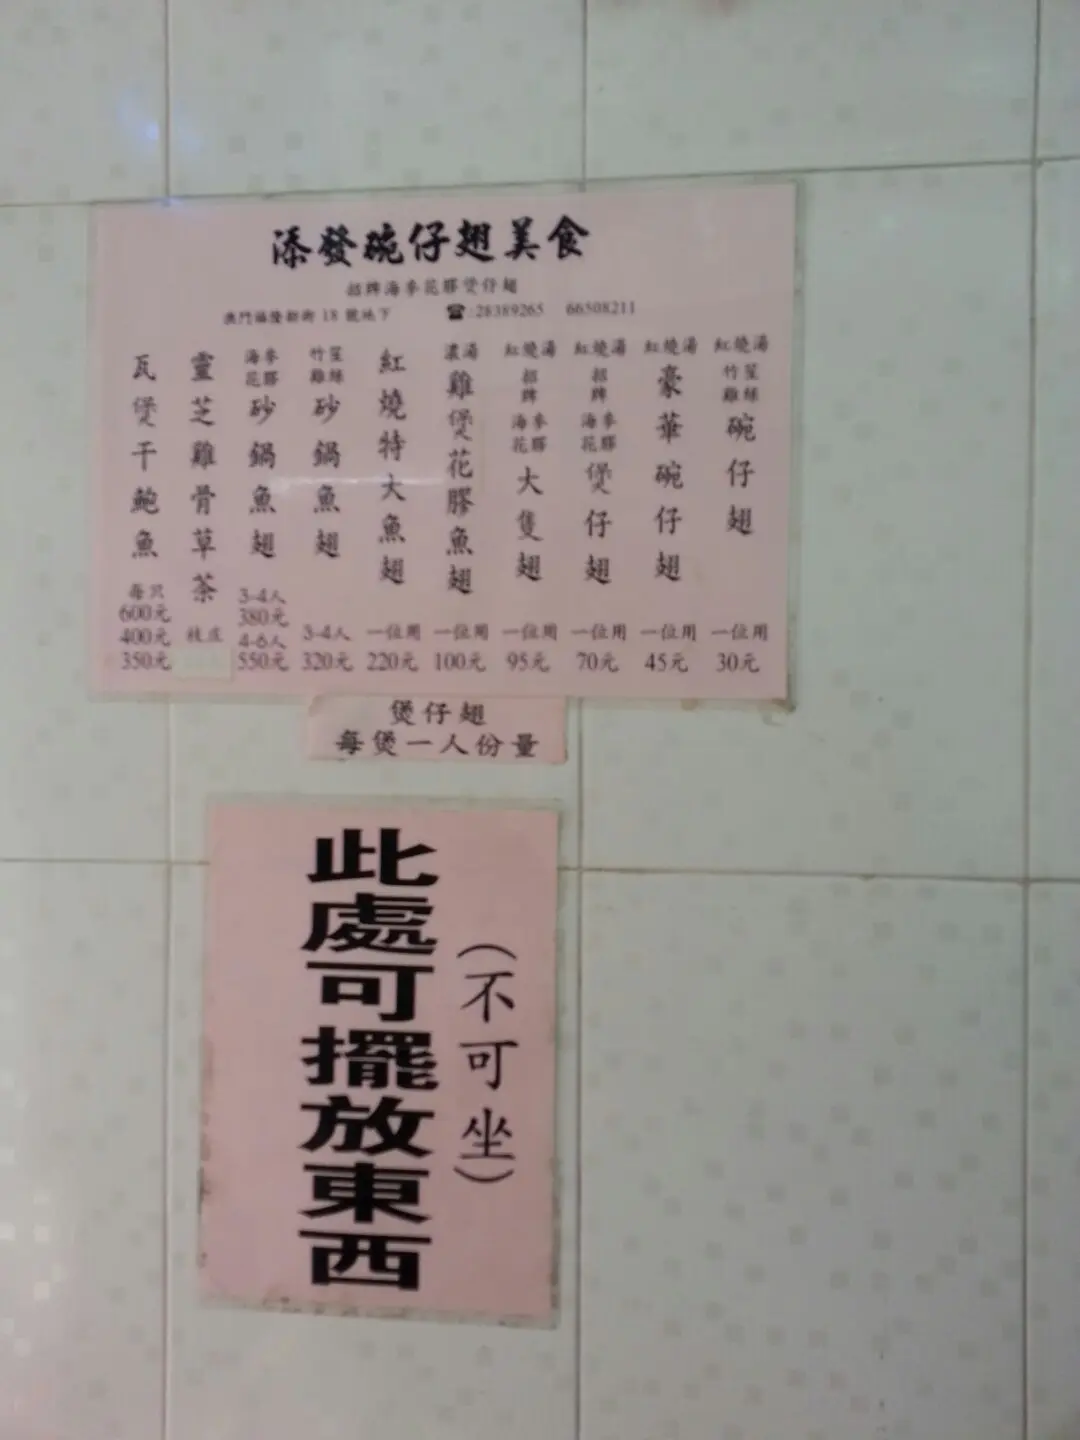 添發碗仔翅美食
招牌海參花膠煲仔翅
澳門福隆新街 18 號地下 ☎:28389265 66508211
紅燒湯 竹笙雞絲 碗仔翅 一位用 30元
紅燒湯 豪華碗仔翅 一位用 45元
紅燒湯 招牌 海參花膠 煲仔翅 一位用 70元
紅燒湯 招牌 海參花膠 大隻翅 一位用 95元
濃湯 雞煲花膠魚翅 一位用 100元
紅燒特大魚翅 一位用 220元
竹笙雞絲 砂鍋魚翅 3-4人 320元
海參花膠 砂鍋魚翅 3-4人 380元 4-6人 550元
靈芝雞骨草茶
瓦煲干鮑魚 每只 600元 400元 350元
煲仔翅
每煲一人份量
(不可坐)
此處可擺放東西